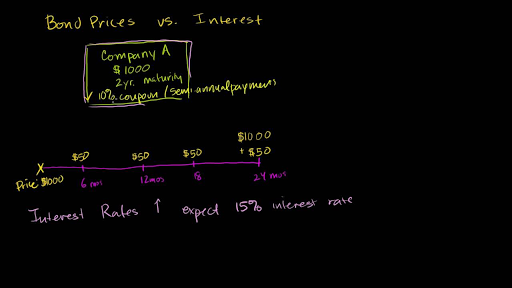 Bond Prices vs. Interest
Company A
$1000
2yr. maturity
10% coupon / semi-annual payments
$1000
$50 $50 $50 + $50
Price: $1000 6 mos 12 mos 18 24 mos
Interest Rates ↑ expect 15% interest rate